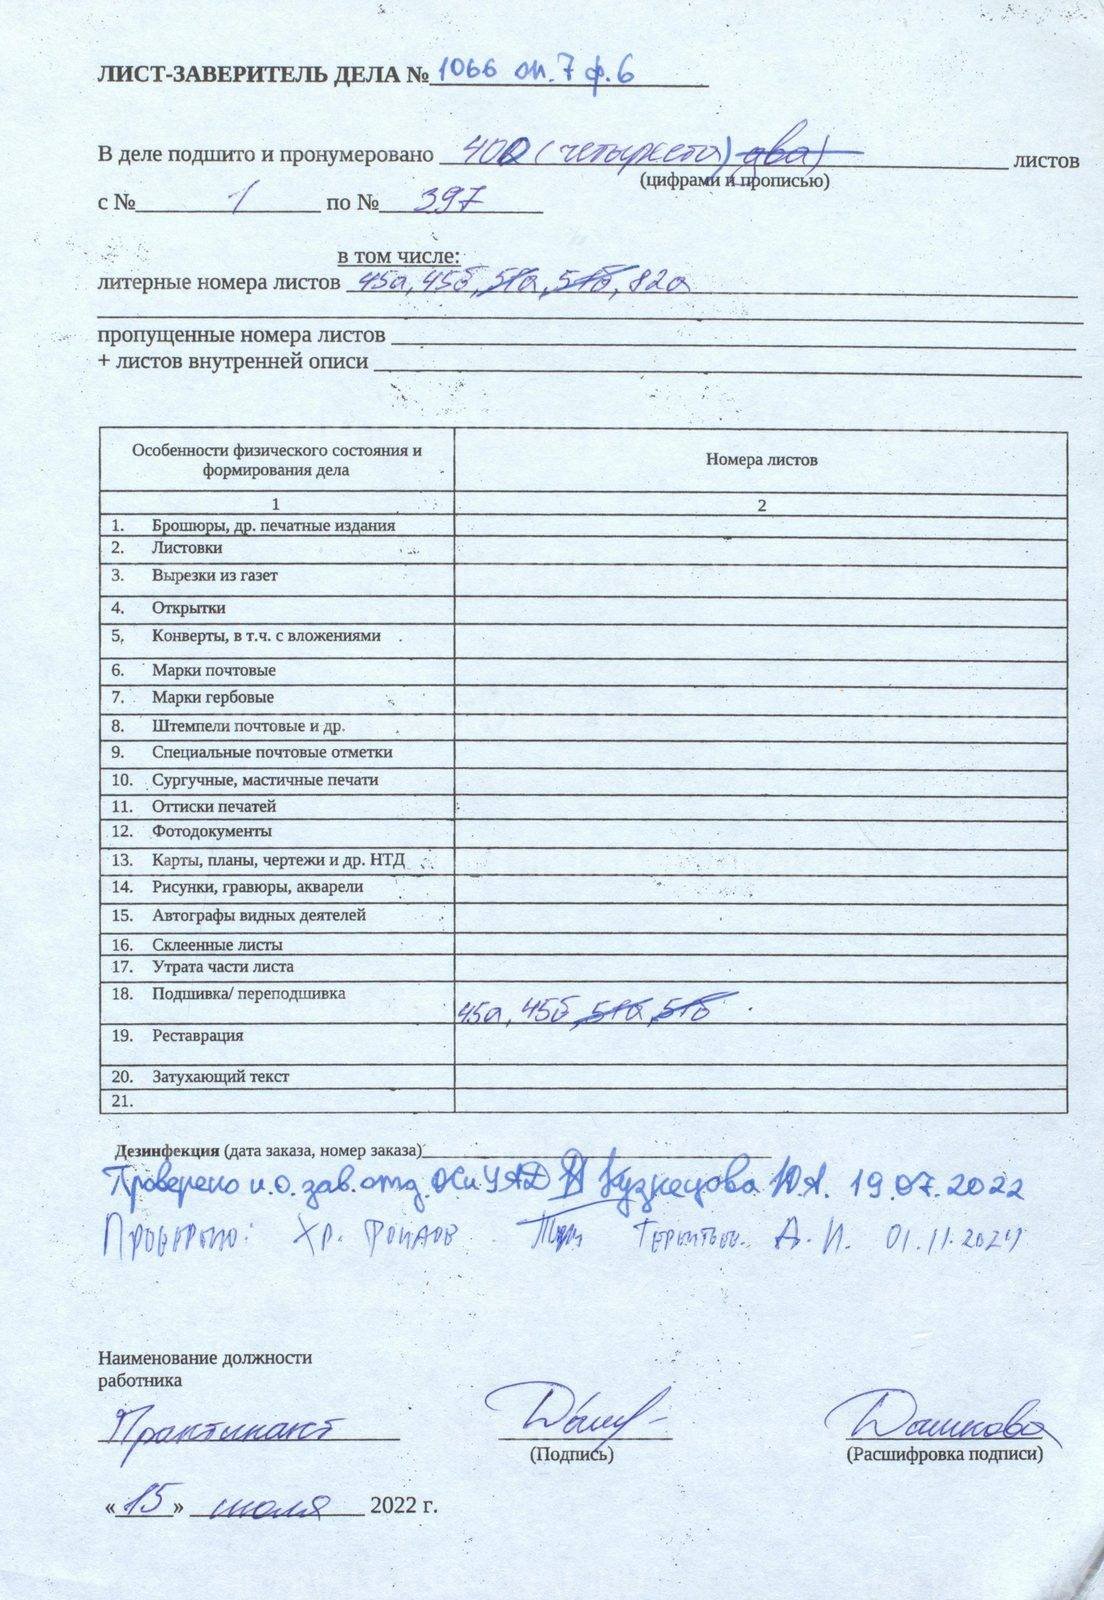 ЛИСТ-ЗАВЕРИТЕЛЬ ДЕЛА № 1066 оп. 7 ф. 6
В деле подшито и пронумеровано 400 (четыреста) два) листов
(цифрами и прописью)
с № 1 по № 397
в том числе:
литерные номера листов 45а, 45б, 51а, 51б, 82а
пропущенные номера листов
+ листов внутренней описи
Особенности физического состояния и формирования дела Номера листов
1 2
1. Брошюры, др. печатные издания
2. Листовки
3. Вырезки из газет
4. Открытки
5. Конверты, в т.ч. с вложениями
6. Марки почтовые
7. Марки гербовые
8. Штемпели почтовые и др.
9. Специальные почтовые отметки
10. Сургучные, мастичные печати
11. Оттиски печатей
12. Фотодокументы
13. Карты, планы, чертежи и др. НТД
14. Рисунки, гравюры, акварели
15. Автографы видных деятелей
16. Склеенные листы
17. Утрата части листа
18. Подшивка/ переподшивка 45а, 45б, 51а, 51б
19. Реставрация
20. Затухающий текст
21.
Дезинфекция (дата заказа, номер заказа)
Проверено и.о. зав. отд. ОСиУАД Кузнецова Ю.А. 19.07.2022
Проверено: Хр. фондов А. И. 01.11.2024
Наименование должности
работника
Практикант Дашкова
(Подпись) (Расшифровка подписи)
«15» июля 2022 г.